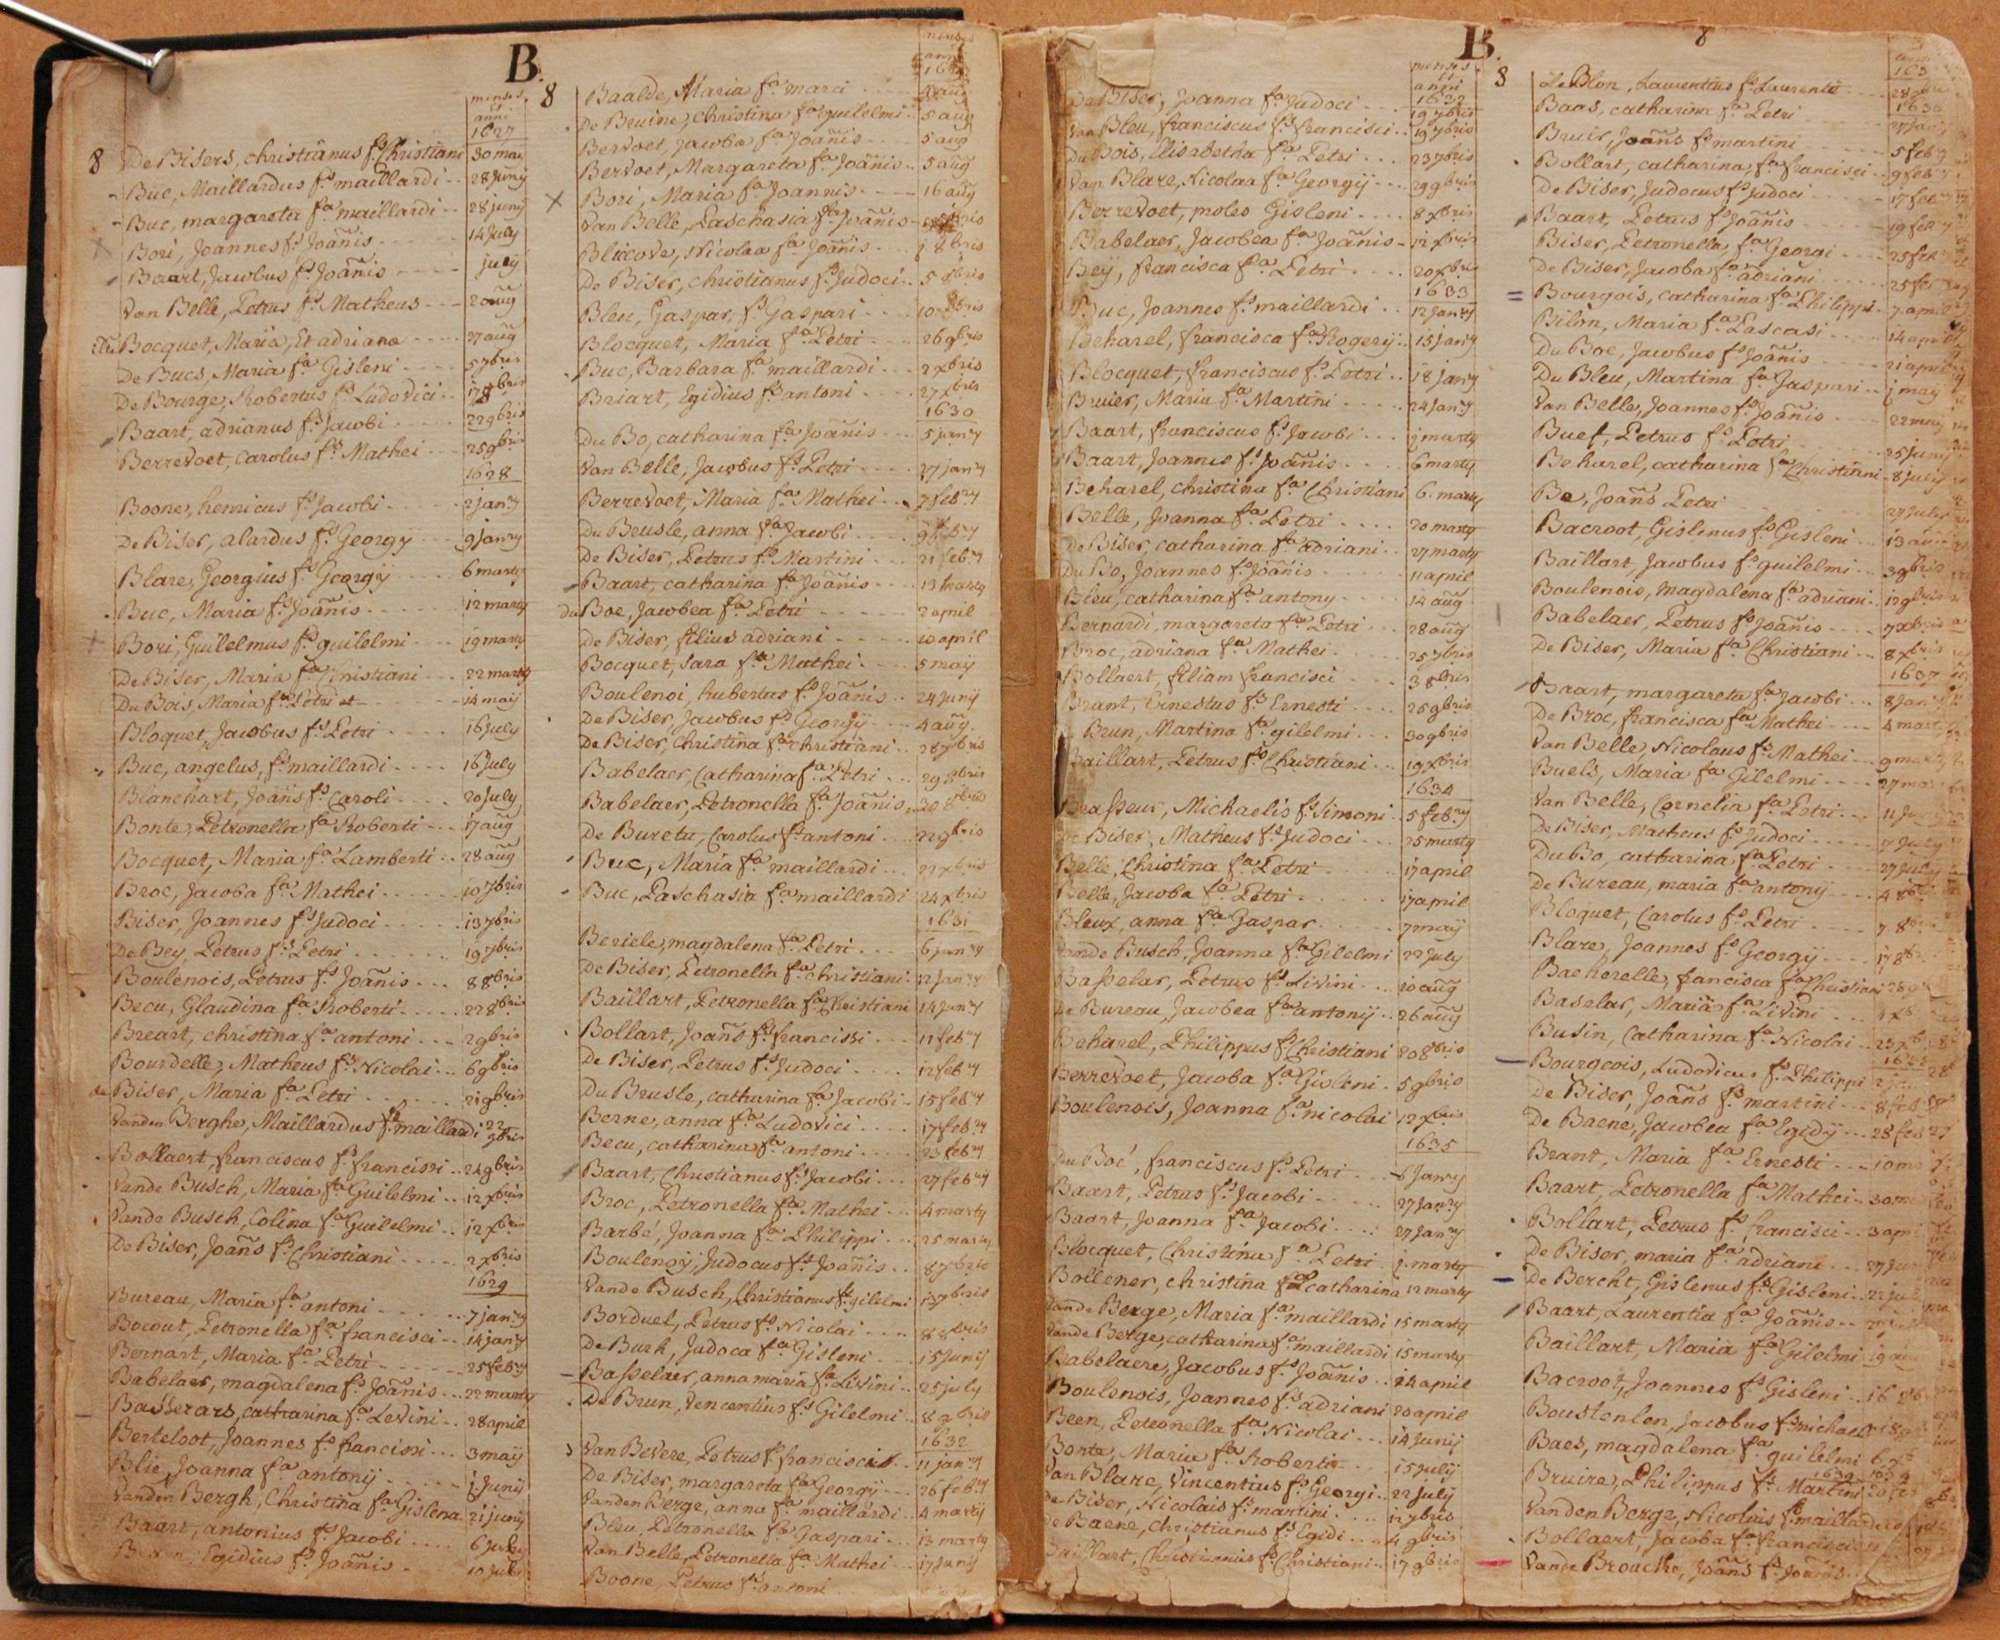 B.
menses
et
anni
1627
8 De Bisers, christianus fs. Christiani 30 may
Buc, Maillardus fs. maillardi 28 Junij
Buc, margareta fa. maillardi 28 junij
Bori, Joannes fs. Joan̄is 14 July
Baart, Jacobus fs. Joan̄is july
Van Belle, Petrus fs. Matheus 20 aug
Bocquet, Maria, Et adriana 27 aug
De Bucs, Maria fa. Gisleni 5 7bris
De Bourge, Robertus fs. Ludovici 17 8bris
Baart, adrianus fs. Jacobi 22 9bris
Berrevoet, Carolus fs. Mathei 25 9bris
1628
Boone, henricus fs. Jacobi 2 janry
De Biser, alardus fs. Georgy 9 janry
Blare, Georgius fs. Georgij 6 marty
Buc, Maria fs. Joan̄is 12 marty
Bori, Guilelmus fs. guilelmi 19 marty
De Biser, Maria fa. Cristiani 22 marty
Du Bois, Maria fa. Petri 14 maij
Bloquet, Jacobus fs. Petri 16 july
Buc, angelus, fs. maillardi 16 July
Blanchart, Joan̄s fs. Caroli 20 july
Bonte, Petronella fa. Roberti 17 aug
Bocquet, Maria fa. Lamberti 28 aug
Broc, Jacoba fa. Mathei 10 7bris
Biser, Joannes fs. Judoci 13 7bris
De Bey, Petrus fs. Petri 19 7bris
Boulenois, Petrus fs. Joan̄is 8 8bris
Becu, Glaudina fa. Roberti 22 8bris
Breart, christina fa. antoni 2 9bris
Bourdelle, Matheus fs. Nicolai 6 9bris
de Biser, Maria fa. Petri 21 9bris
Vanden Berghe, Maillardus fs. maillardi 22 9bris
Bollaert, franciscus fs. francissi 24 9bris
Vande Busch, Maria fa. Guilelmi 12 xbris
Vande Busch, Colina fa. Guilelmi 12 xbris
De Biser, Joan̄s fs. Christiani 2 xbris
1629
Bureau, Maria fa. antoni 7 janry
Bocout, Petronella fa. francisci 14 janry
Bernart, Maria fa. Petri 25 febry
Babelaer, magdalena fs. Joan̄is 22 marty
Basserars, catharina fa. Levini 28 april
Berteloot, Joannes fs. francissi 3 may
Blie, Joanna fa. antonij Junij
Vanden Bergh, Christina fa. Gislena 21 junij
Baart, antonius fs. Jacobi 6 july
Egidius fs. Joan̄is 10 july
8 Baalde, Maria fa. marci aug
De Bruine, Christina fa. guilelmi 5 aug
Bervoet, Jacoba fa. Joan̄is 5 aug
Bervoet, Margareta fa. Joan̄is 5 aug
Bori, Maria fa. Joannis 16 aug
Van Belle, Paschasia fa. Joan̄is
Blicove, Nicolaa fa. Joan̄is 8bris
De Biser, christianus fs. Judoci 5 8bris
Bleu, Gaspar, fs. Gaspari 10 8bris
Blocquet, Maria fa. Petri 26 9bris
Buc, Barbara fa. maillardi 2 xbris
Briart, Egidius fs. antoni 27 xbris
1630
Du Bo, catharina fa. Joan̄is 5 janry
Van Belle, Jacobus fs. Petri 27 janry
Berrevoet, Maria fa. Mathei 7 febry
Du Beusle, anna fa. Jacobi 9 febry
De Biser, Petrus fs. Martini 21 febry
Baart, catharina fa. Joan̄is 13 marty
Du Boe, Jacobea fa. Petri 2 april
De Biser, filius adriani 10 april
Bocquet, Sara fa. Mathei 5 may
Boulenoi, hubertus fs. Joan̄is 24 junij
De Biser, Jacobus fs. Georgi 4 aug
De Biser, Christina fa. christiani 28 7bris
Babelaer, Catharina fa. Petri 29 9bris
Babelaer, Petronella fa. Joan̄is
De Buretu, Carolus fs. antoni 22 9bris
Buc, Maria fa. maillardi 22 xbris
Buc, Paschasia fa. maillardi 24 xbris
1631
Beriele, magdalena fa. Petri 6 janry
De Biser, Petronella fa. christiani 12 janry
Baillart, Petronella fa. Christiani 14 janry
Bollart, Joan̄s fs. francissi 11 febry
De Biser, Petrus fs. Judoci 12 febry
Du Brusle, catharina fa. Jacobi 15 febry
Berne, anna fa. Ludovici 17 febry
Becu, catharina fa. antoni 23 febry
Baart, Christianus fs. Jacobi 27 febry
Broc, Petronella fa. Mathei 4 marty
Barbé, Joanna fa. Philippi 25 marty
Boulenoy, Judocus fs. Joan̄is 8 7bris
Vande Busch, Christianus fs. gilelmi 13 7bris
Borduel, Petrus fs. Nicolai 8 8bris
De Burk, Judoca fa. Gisleni 15 Junij
Basselaer, anna maria fa. Livini 25 july
De Brun, Vencentius fs. Gilelmi 8 9bris
1632
Van Bevere, Petrus fs. francisci 11 janry
De Biser, margareta fa. Georgij 26 febry
Vanden Berge, anna fa. maillardi 4 martij
Bleu, Petronella fa. Gaspari 13 marty
Van Belle, Petronella fa. Mathei 17 junij
Boone, Petrus fs. antoni
B.
8
menses
et
anni
1632
De Biser, Joanna fa. Judoci 19 7bris
Van Bleu, franciscus fs. francisci 19 7bris
Du Bois, Elisabetha fa. Petri 23 7bris
Van Blare, Nicolaa fa. Georgij 29 9bris
Berrevoet, moles Gisleni 8 xbris
Babelaer, Jacobea fa. Joan̄is 12 xbris
Bey, francisca fa. Petri 20 xbris
1633
Buc, Joannes fs. maillardi 12 janry
Beharel, francisca fa. Rogerij 15 janry
Blocquet, franciscus fs. Petri 18 janry
Bruier, Maria fa. Martini 24 janry
Baart, franciscus fs. Jacobi marty
Baart, Joannes fs. Joan̄is 6 marty
Beharel, Christina fa. Christiani 6 marty
Belle, Joanna fa. Petri 20 marty
De Biser, catharina fa. adriani 27 marty
Du Bo, Joannes fs. Joan̄is 11 april
Bleu, catharina fa. antony 14 aug
Bernardi, margareta fa. Petri 28 aug
Broc, adriana fa. Mathei 25 7bris
Bollaert, filiam francisci 3 8bris
Brant, Ernestus fs. Ernesti 25 9bris
Brun, Martina fa. gilelmi 30 9bris
Baillart, Petrus fs. Christiani 19 xbris
1634
Brasseur, Michaelis fs. Simoni 5 febry
De Biser, Matheus fs. Judoci 25 marty
Belle, Christina fa. Petri 17 april
Belle, Jacoba fa. Petri 17 april
Bleux, anna fa. Gaspar 7 maij
Vande Busch, Joanna fa. Gilelmi 22 july
Basselar, Petrus fs. Livini 10 aug
De Bureau, Jacobea fa. antonij 26 aug
Beharel, Philippus fs. Christiani 20 8bris
Berrevoet, Jacoba fa. Gisleni 5 9bris
Boulenois, Joanna fa. nicolai 12 xbris
1635
Du Boé, franciscus fs. Petri 6 janry
Baart, Petrus fs. Jacobi 27 janry
Baart, Joanna fa. Jacobi 27 janry
Blocquet, Christina fa. Petri marty
Bollener, christina fa. catharina 12 marty
Vande Berge, Maria fa. maillardi 15 marty
Vande Berge, catharina fa. maillardi 15 marty
Babelaere, Jacobus fs. Joan̄is 24 april
Boulenois, Joannes fs. adriani 20 april
Been, Petronella fa. Nicolai 14 junij
Bonta, Maria fa. Roberti 15 july
Van Blare, Vincentius fs. Georgi 22 july
De Biser, Nicolais fs. martini 12 7bris
De Baene, Christianus fs. Egidi 4 9bris
Baillart, Christianus fs. Christiani 17 9bris
8 Le Blon, Laurentius fs. Laurentii
Baas, catharina fa. Petri
Bruir, Joan̄s fs. martini 5 feb
Bollart, catharina, fa. francisci 9 feb
De Biser, Judocus fs. Judoci 17 feb
Baart, Petrus fs. Joan̄is 19 feb
Biser, Petronella, fa. Georgi 25 feb
De Biser, Jacoba fa. adriani 25 feb
Bourgois, Catharina fa. Philippi 7 april
Bilon, Maria fa. Pascasi 14 april
Du Boe, Jacobus fs. Joan̄is 21 april
Du Bleu, Martina fa. Gaspari may
Van Belle, Joannes fs. Joan̄is 22 may
Buef, Petrus fs. Petri 25 juny
Beharel, catharina fa. Christiani 8 july
Be, Joan̄s Petri 24 july
Bacroot, Gislenus fs. Gisleni 13 aug
Baillart, Jacobus fs. guilelmi 3 9bris
Boulenois, magdalena fa. adriani 19 9bris
Babelaer, Petrus fs. Joan̄is 7 xbris
De Biser, Maria fa. Christiani 8 xbris
1637
Baart, margareta fa. Jacobi 8 jan
De Broc, francisca fa. Mathei 4 mart
Van Belle, Nicolaus fs. Mathei 9 mart
Buels, Maria fa. Gilelmi 27 mar
Van Belle, Cornelia fa. Petri 11 ju
De Biser, Matheus fs. Judoci 7 july
Du Bo, catharina fa. Petri 27 july
De Bureau, maria fa. antony 4 8b
Bloquet, Carolus fs. Petri 7 8b
Blare, Joannes fs. Georgy 17 8b
Bacherelle, francisca fa. Christiani
Baselar, Maria fa. Livini
Busin, Catharina fa. Nicolai 25 xb
Bourgeois, Ludovicus fs. Philippi
De Biser, Joan̄s fs. martini 8 feb
De Baene, Jacobea fa. Egidij 28 feb
Brant, Maria fa. Ernesti
Baart, Petronella fa. Mathei
Bollart, Petrus fs. francisci 3 apri
De Biser, maria fa. adriani 27 jun
De Bercht, Gislenus fs. Gisleni 22 jul
Baart, Laurentia fa. Joan̄is
Baillart, Maria fa. Gilelmi
Bacroot, Joannes fs. Gisleni
Boustenlen, Jacobus fs. michaeli
Baes, magdalena fa. guilelmi
Bruire, Philippus fs. Martini
Vanden Berge, Nicolais fs. maillardi
Bollaert, Jacoba fa. francisci
Vande Broucke, Joan̄s fs. Joan̄is